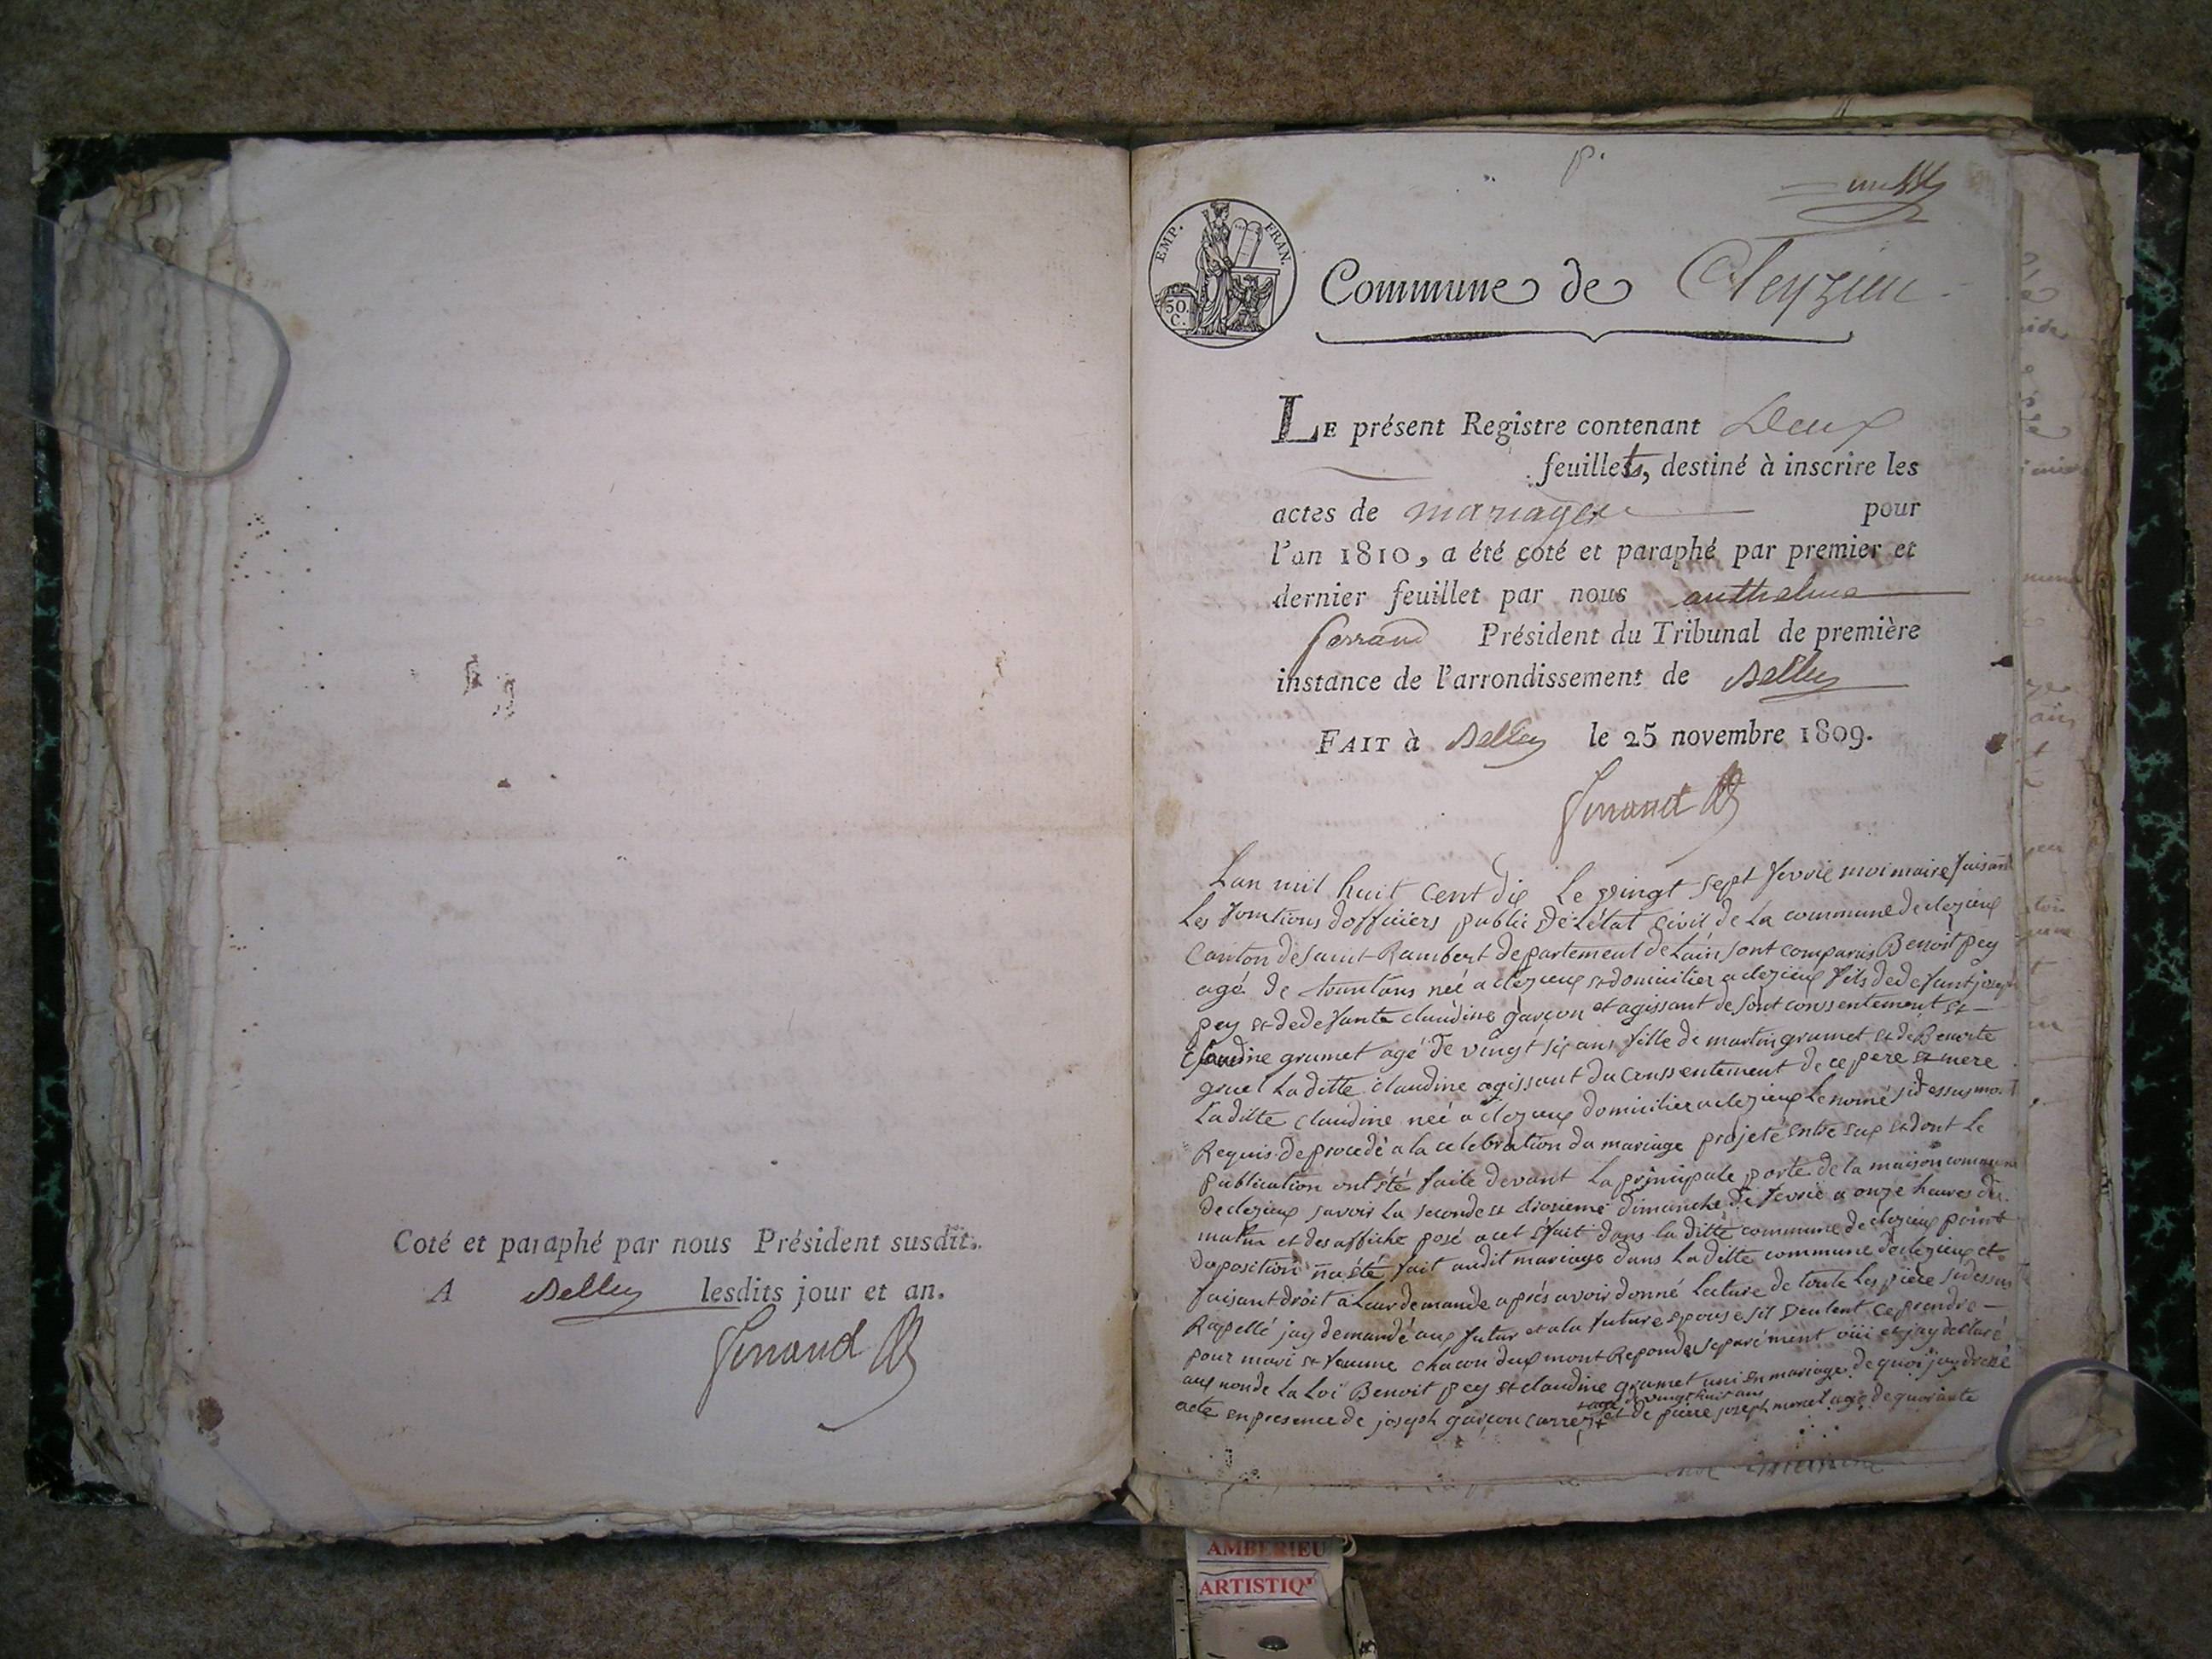 Coté et paraphé par nous Président susdit.
A Belley lesdits jour et an.
Ferrand
P.
un
EMP. FRAN.
50. C.
Commune de Cleyzieu
LE présent Registre contenant Deux
feuillets, destiné à inscrire les
actes de mariages pour
l'an 1810, a été coté et paraphé par premier et
dernier feuillet par nous anthelme
ferrand Président du Tribunal de première
instance de l'arrondissement de Belley
FAIT à Belley le 25 novembre 1809.
Ferrand
Lan mil huit cent dix Le vingt sept fevrié moi maire faisant
Les fonctions dofficiers public de Létat civil de La commune de clezieux
Canton de saint Rambert departement de Lain sont comparus Benoit pey
agé de trentans neé a clezieux et domicilier a clezieux fils de defunt joseph
pey et de defunte claudine garçon et agissant de sont conssentement et
Claudine grumet agé de vingt six ans fille de martin grumet et de Benoite
gruel La ditte claudine agissant du conssentement de ce pere et mere
La ditte claudine neé a clezieux domicilier a clezieux Le nomé sidessus mont
Requis de procedé a la celebration du mariage projeté entre eux et dont Le
publication ont été faite devant La principale porte de la maison commune
de clezieux savoir La seconde et troisieme dimanche de fevrié a onze heures du
matin et des affiche posé a cet éfait dans la ditte commune de clezieux point
doposition na été fait audit mariage dans La ditte commune de clezieux et
faisant droit a Leur demande aprés avoir donné Lecture de toute Les piece sidessus
Rapellé jay demandé aux futur et a la future epouse sil veulent ce prendre
pour mari et femme chacon deux mont Repondu separément oüii et jay declaré
aux nonde La Loi Benoit pey et claudine grumet uni en mariage de quoi jay dressé
agé de vingt huit ans
acte en presence de joseph garçon carre et de pierre joseph morel agé de quarante
AMBERIEU
ARTISTIQ